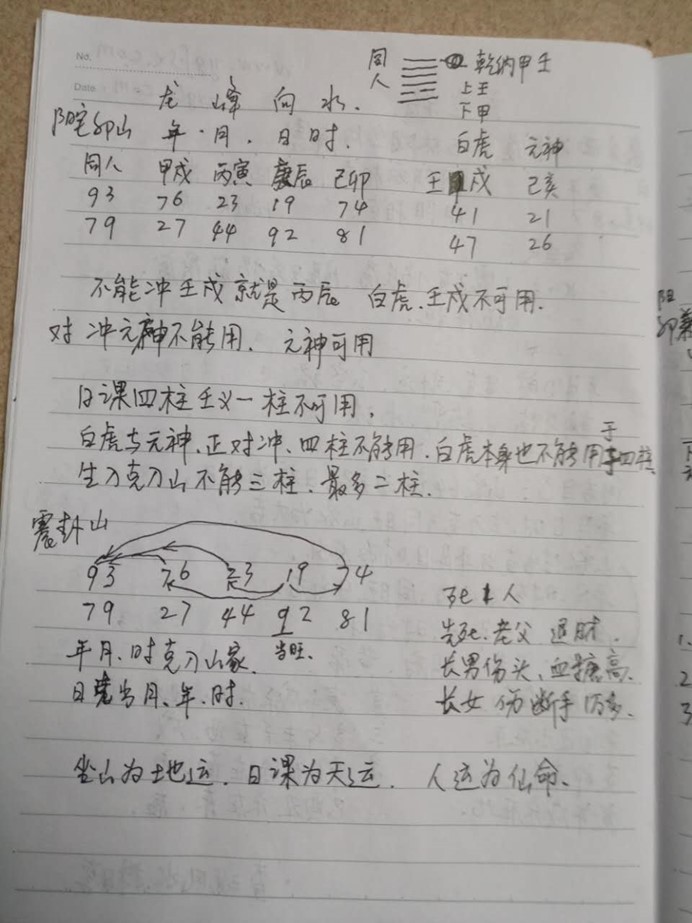 No.
Date
同人 乾纳甲壬
上壬
下甲
龙 峰 向 水.
阳宅卯山 年.月.日时. 白虎 元神
同人 甲戌 丙寅 庚辰 己卯 壬戌 己亥
93 76 23 19 74 41 21
79 27 44 92 81 47 26
不能冲壬戌就是丙辰 白虎.壬戌不可用.
对冲元神不能用. 元神可用
日课四柱壬义一柱不可用,
白虎与元神.正对冲、四柱不能用.白虎本身也不能用于四柱
生入克入山不能三柱.最多二柱.
震卦山
93 76 23 19 74
79 27 44 92 81
年月、时克入山家. 当旺.
日 当月、年、时.
死 人
先死.老父 退财.
长男伤头、血糖高.
长女 伤断手 多.
坐山为土地运. 日课为天运. 人运为仙命.
阳
卯
1.
2
3